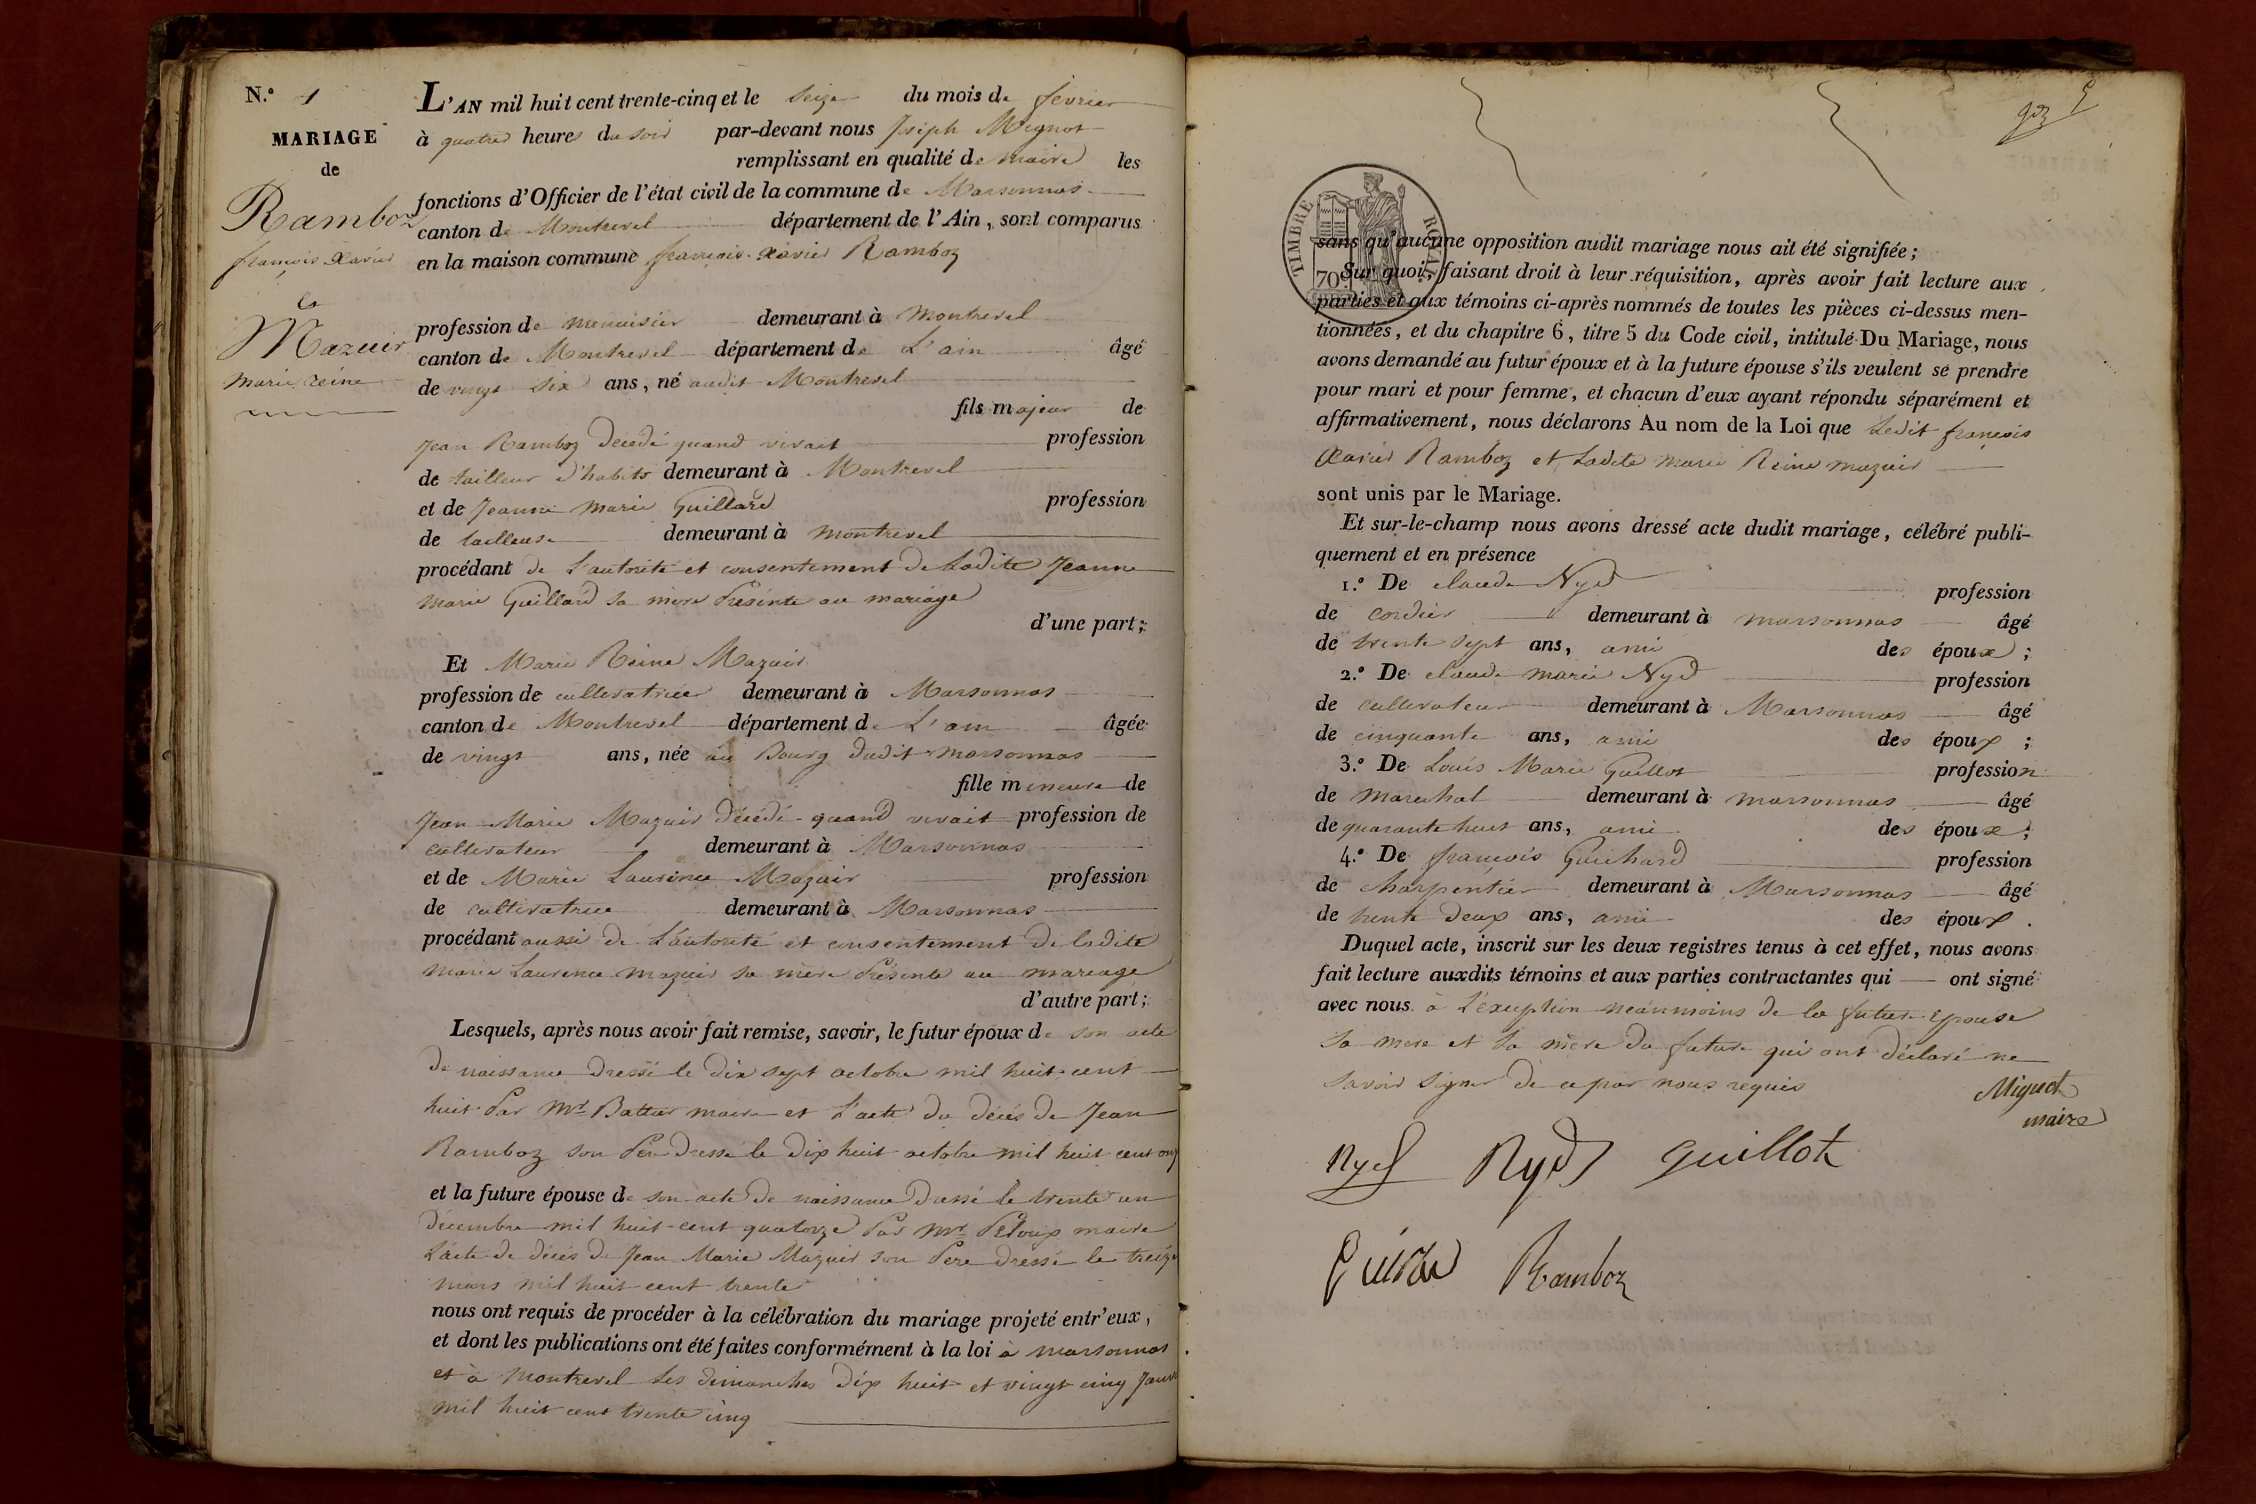 N.o 1
MARIAGE
de
Ramboz
françois Xavier
et
Mazuir
Marie reine
L'AN mil huit cent trente-cinq et le Seize du mois de fevrier
à quatre heures du soir par-devant nous Joseph Miguet
remplissant en qualité de maire les
fonctions d'Officier de l'état civil de la commune de Marsonnas
canton de Montrevel département de l'Ain, sont comparus
en la maison commune françois-xavier Ramboz
profession de menuisier demeurant à Montrevel
canton de Montrevel département de L'ain âgé
de vingt six ans, né audit Montrevel
fils majeur de
Jean Ramboz décédé quand vivait profession
de tailleur d'habits demeurant à Montrevel
et de Jeanne Marie Guillard profession
de tailleuse demeurant à Montrevel
procédant de L'autorité et consentement de Ladite Jeanne
Marie Guillard sa mere Présente au mariage
d'une part;
Et Marie Reine Mazuir
profession de cultivatrice demeurant à Marsonnas
canton de Montrevel département de L'ain âgée
de vingt ans, née au Bourg dudit marsonnas
fille mineure de
Jean Marie Mazuir décédé quand vivait profession de
cultivateur demeurant à Marsonnas
et de Marie Laurence Mazuir profession
de cultivatrice demeurant à Marsonnas
procédant aussi de L'autorité et consentement de ladite
Marie Laurence mazuir sa mère Présente au mariage
d'autre part;
Lesquels, après nous avoir fait remise, savoir, le futur époux de son acte
de naissance dressé le dix sept octobre mil huit cent
huit Par Mr maire et L'acte du décés de Jean
Ramboz son Pere dressé le dix huit octobre mil huit cent onze
et la future épouse de son acte de naissance dressé le trente un
décembre mil huit cent quatorze Par Mr Peloux maire
L'acte de décés de Jean Marie Mazuir son Pere dressé le treize
mars mil huit cent trente
nous ont requis de procéder à la célébration du mariage projeté entr'eux,
et dont les publications ont été faites conformément à la loi à marsonnas
et à Montrevel Les dimanches dix huit et vingt cinq Janvier
mil huit cent trente cinq
TIMBRE ROYAL
70
sans qu'aucune opposition audit mariage nous ait été signifiée;
Sur quoi, faisant droit à leur réquisition, après avoir fait lecture aux
parties et aux témoins ci-après nommés de toutes les pièces ci-dessus men-
tionnées, et du chapitre 6, titre 5 du Code civil, intitulé Du Mariage, nous
avons demandé au futur époux et à la future épouse s'ils veulent se prendre
pour mari et pour femme, et chacun d'eux ayant répondu séparément et
affirmativement, nous déclarons Au nom de la Loi que Ledit françois
Xavier Ramboz et Ladite Marie Reine mazuir
sont unis par le Mariage.
Et sur-le-champ nous avons dressé acte dudit mariage, célébré publi-
quement et en présence
1.o De claude Nyd profession
de cordier demeurant à marsonnas âgé
de trente sept ans, ami des époux;
2.o De claude marie Nyd profession
de cultivateur demeurant à Marsonnas âgé
de cinquante ans, ami des époux;
3.o De Louis Marie Guillot profession
de Marechal demeurant à marsonnas âgé
de quarante huit ans, ami des époux;
4.o De françois Guichard profession
de charpentier demeurant à Marsonnas âgé
de trente deux ans, ami des époux.
Duquel acte, inscrit sur les deux registres tenus à cet effet, nous avons
fait lecture auxdits témoins et aux parties contractantes qui ont signé
avec nous à L'exception néanmoins de la future Epouse
Sa mere et la mère du futur qui ont déclaré ne
savoir signer de ce par nous requis
Miguet
maire
Nyd Nyd guillot
Ramboz